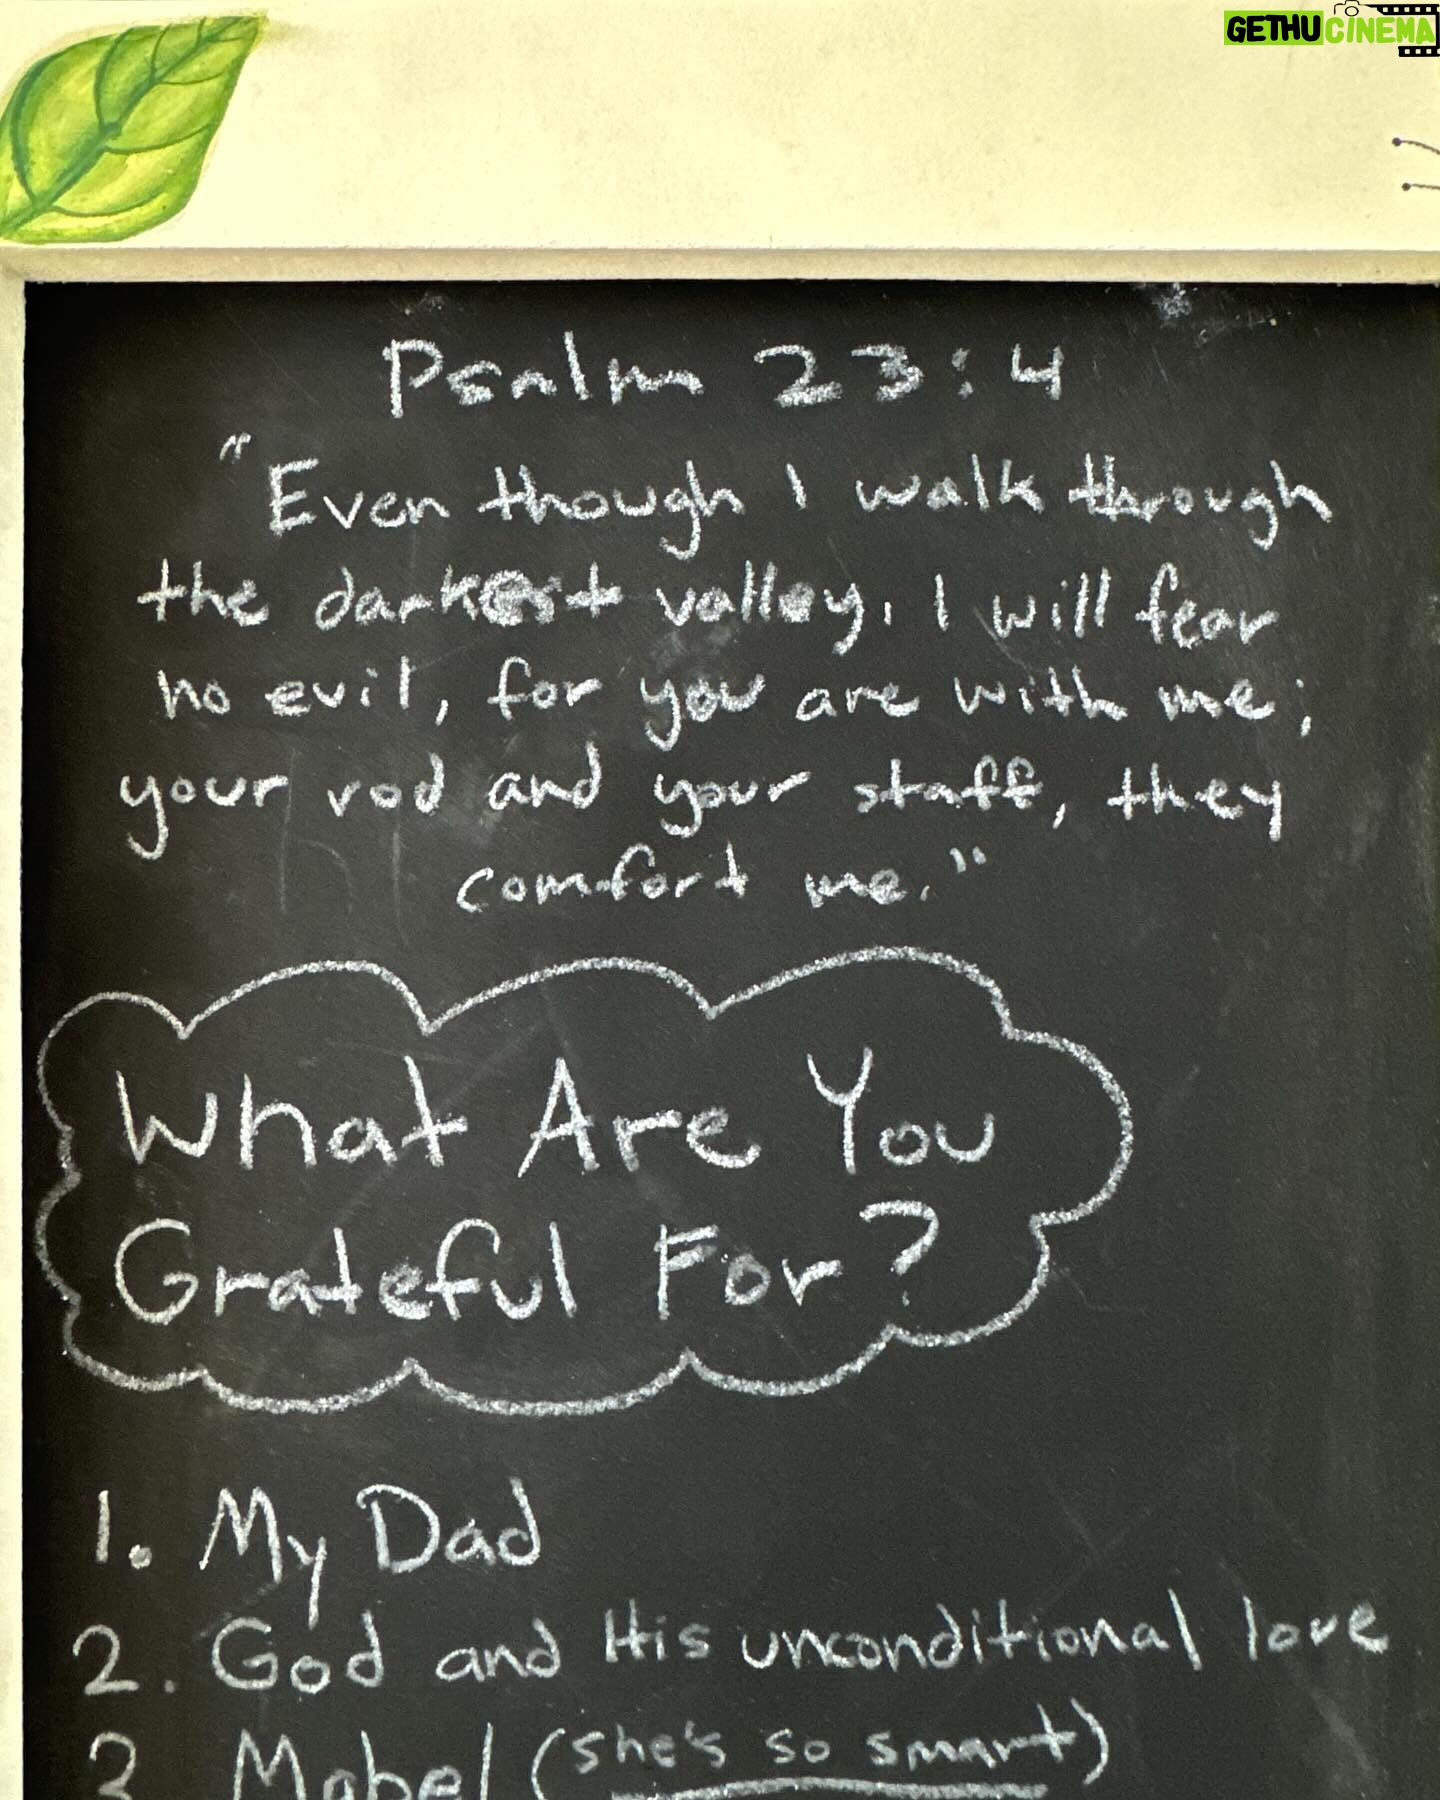 GETHUCINEMA
Psalm 23:4
"Even though I walk through
the darkest valley, I will fear
no evil, for you are with me;
your rod and your staff, they
comfort me."
What Are You
Grateful For?
1. My Dad
2. God and His unconditional love
3 Mabel (she's so smart)